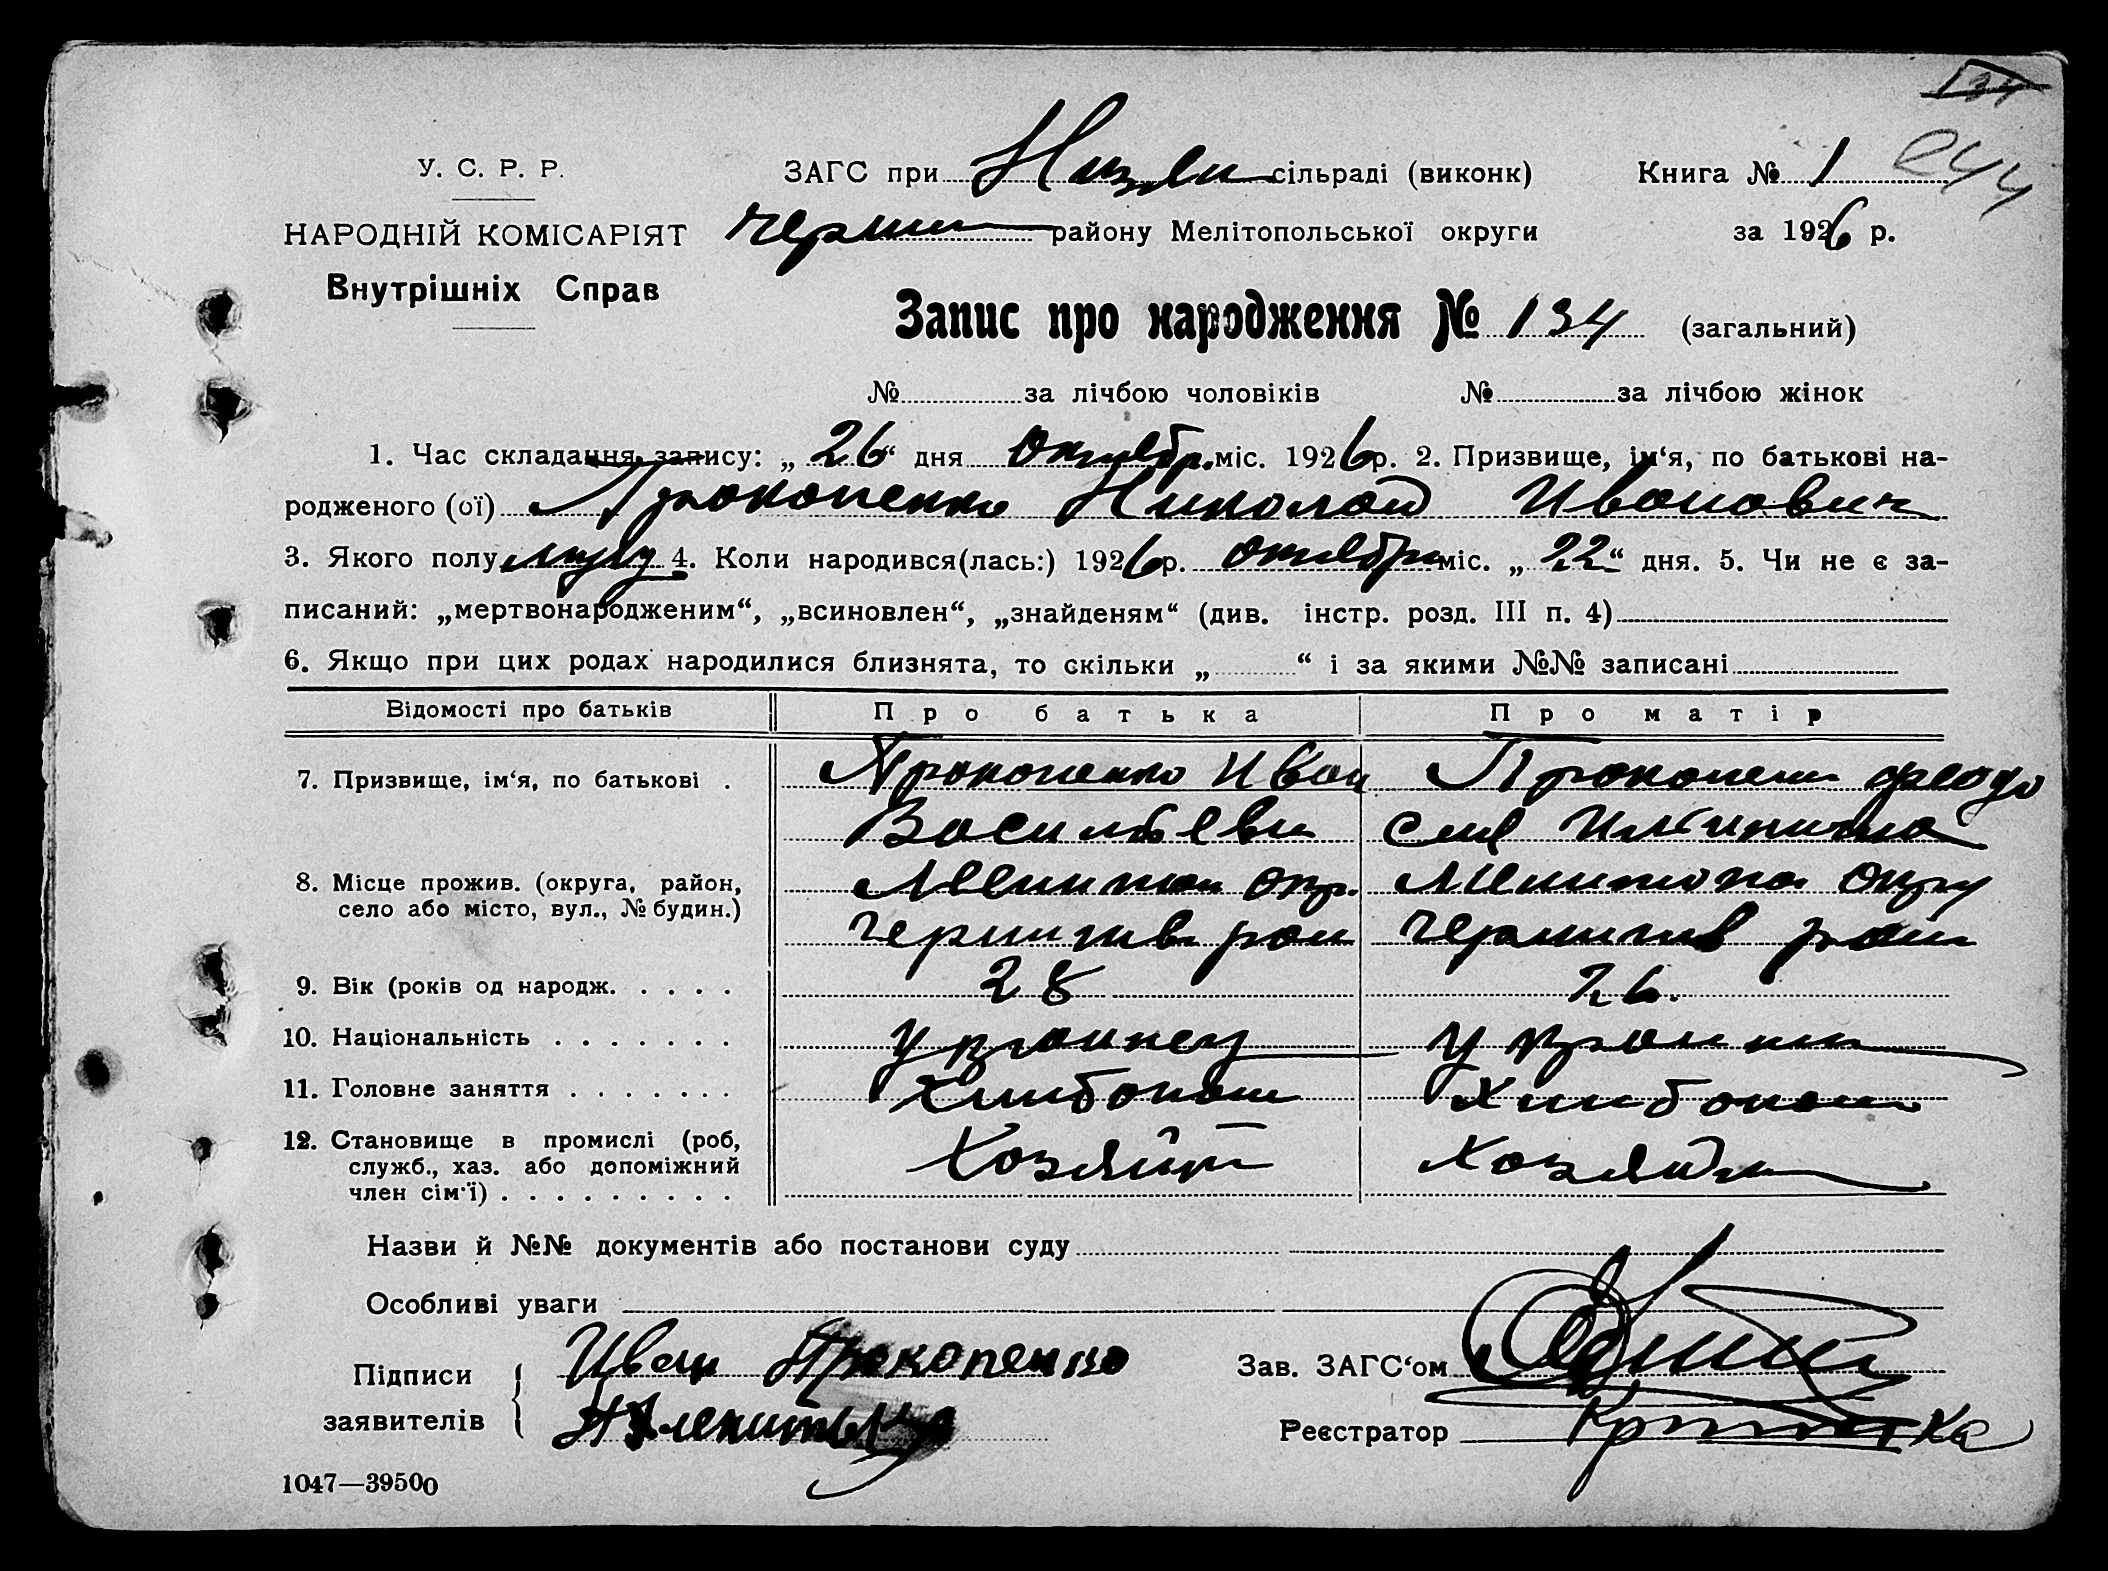 134
244
У. С. Р. Р.
ЗАГС при сільраді (виконк)
Книга № 1
НАРОДНІЙ КОМІСАРІЯТ
району Мелітопольської округи
за 1926 р.
Внутрішніх Справ
Запис про народження № 134 (загальний)
№ за лічбою чоловіків № за лічбою жінок
1. Час складання запису: „26“ дня Октябр. міс. 1926 р. 2. Призвище, ім‘я, по батькові на-
родженого (ої) Прокопенко Николай Иванович
3. Якого полу муж 4. Коли народився(лась:) 1926 р. октября міс. „22“ дня. 5. Чи не є за-
писаний: „мертвонародженим“, „всиновлен“, „знайденям“ (див. інстр. розд. III п. 4)
6. Якщо при цих родах народилися близнята, то скільки „ “ і за якими №№ записані
Відомості про батьків Про батька Про матір
7. Призвище, ім‘я, по батькові . Прокопенко Иван Прокопенко Феодо
Васильеви сия
8. Місце прожив. (округа, район, окр. окру
село або місто, вул., № будин.)
9. Вік (років од народж. . . . . 28 26.
10. Національність . . . . . . . украинец украин
11. Головне заняття . . . . . . . Хлибопаш Хлибопаш
12. Становище в промислі (роб, Хозяин Хозяйка
служб., хаз. або допоміжний
член сім‘ї) . . . . . . . . .
Назви й №№ документів або постанови суду
Особливі уваги
Підписи Иван Прокопенко
Зав. ЗАГС‘ом
заявителів
Реєстратор
1047—39500